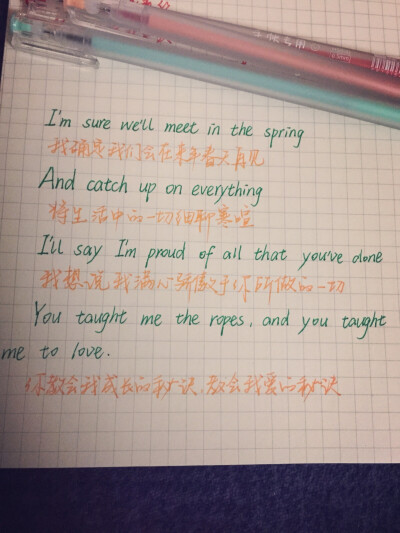 I'm sure we'll meet in the spring
我确定我们会在来年春天再见
And catch up on everything
将生活中的一切细聊寒喧
I'll say I'm proud of all that you've done
我想说我满心骄傲于你所做的一切
You taught me the ropes, and you taught
me to love.
你教会我成长的秘诀,教会我爱的秘诀